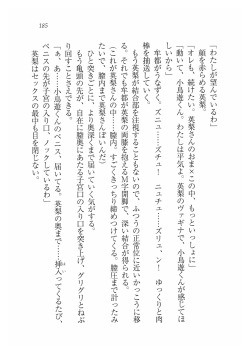 185
「わたしが望んでいるわ」
顔を赤らめる英梨。
「オレも、続けたい。英梨さんのおま×この中、もっといっしょに」
「動いて、小鳥遊くん。わたしは平気よ。英梨のヴァギナで、小鳥遊くんが感じてほ
しいから」
牟都がうなずく。ズニュ……ズチュ！　ニュチュ……ズリュ、ン！　ゆっくりと肉
棒を抽送していく。
もう英梨が結合部を注視することもないので、ふつうの正常位に近いかっこうに移
る。それでも牟都が英梨の両膝を抱えるM字開脚で、深い結合が得られる。
（これが英梨さんの中……膣内。すごくきっちり締めつけてくる。膣圧まで計ったみ
たい。膣内まで英梨さんはいいんだ）
ひと突きごとに、より奥深くまで届いていく気がする。
もう亀頭の先が、自在に膣奥にあたる子宮口の入り口を突き上げ、グリグリとねぶ
り回すことさえできる。
「あ、あうっ！　小鳥遊くんのペニス、届いてる。英梨の奥まで……挿入ってくるたび、
ペニスの先が子宮の入り口、ノックしているわ」
英梨はセックスの最中も目を閉じない。